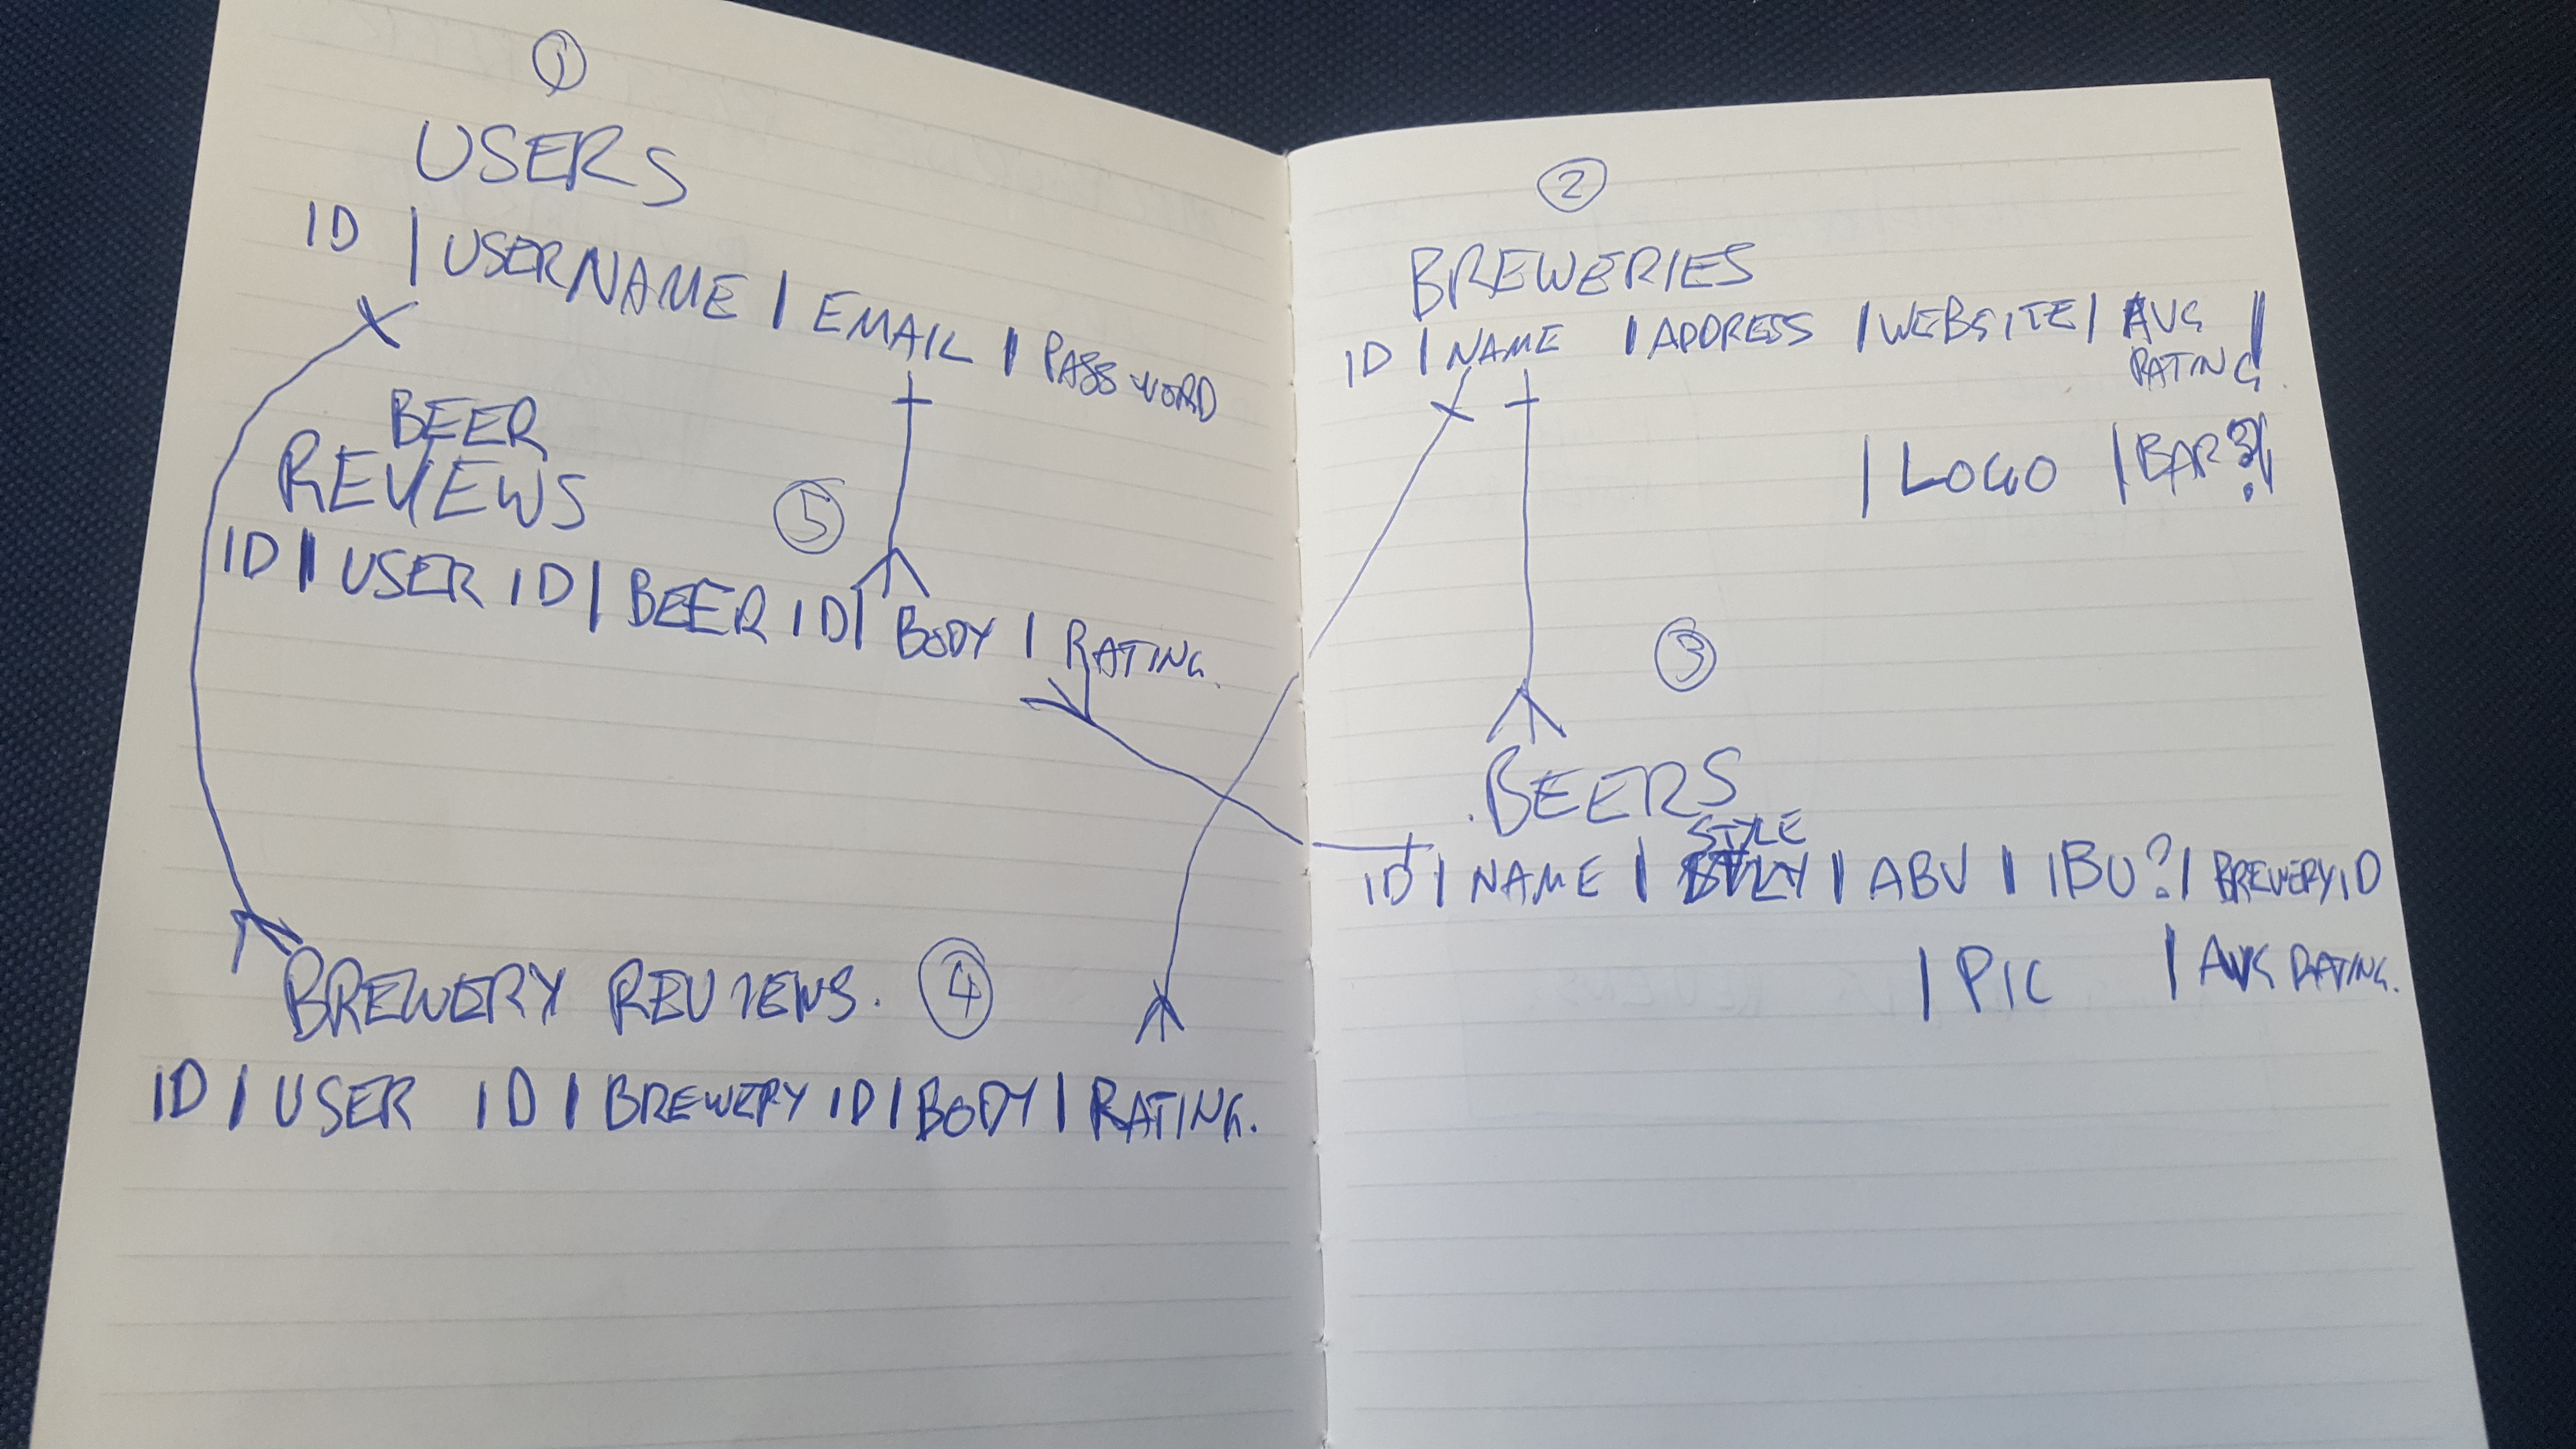 ①
USERS
ID | USERNAME | EMAIL | PASSWORD
BEER
REVIEWS
⑤
ID | USER ID | BEER ID | BODY | RATING.
BREWERY REVIEWS. ④
ID | USER ID | BREWERY ID | BODY | RATING.
②
BREWERIES
ID | NAME | ADDRESS | WEBSITE | AVG RATING |
| LOGO | BAR?|
③
BEERS
STYLE
ID | NAME | | ABV | IBU? | BREWERY ID
| PIC | AVG RATING.